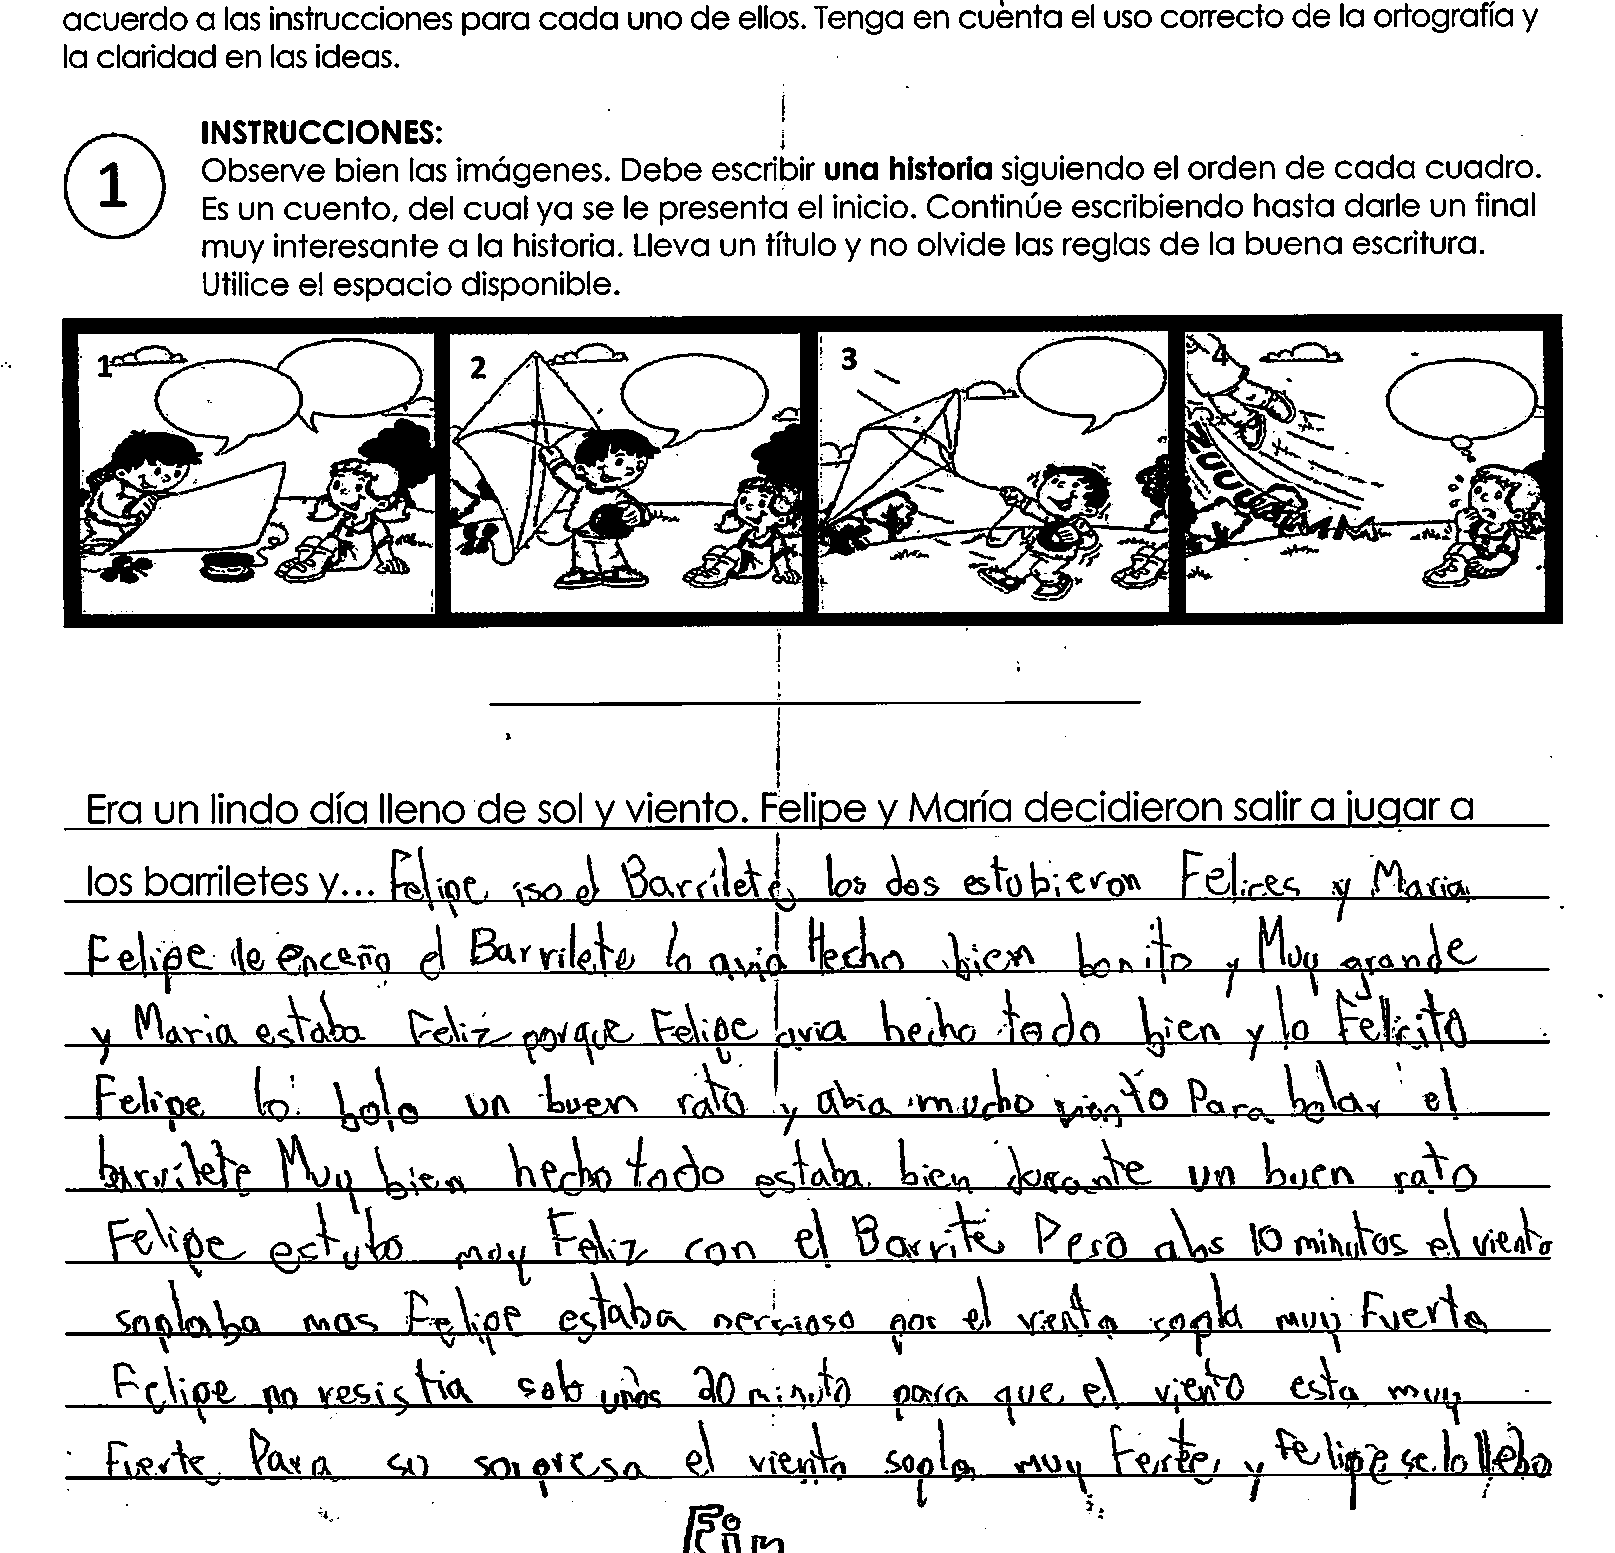 acuerdo a las instrucciones para cada uno de ellos. Tenga en cuenta el uso correcto de la ortografía y
la claridad en las ideas.
1
INSTRUCCIONES:
Observe bien las imágenes. Debe escribir una historia siguiendo el orden de cada cuadro.
Es un cuento, del cual ya se le presenta el inicio. Continúe escribiendo hasta darle un final
muy interesante a la historia. Lleva un título y no olvide las reglas de la buena escritura.
Utilice el espacio disponible.
1 2 3 4
Era un lindo día lleno de sol y viento. Felipe y María decidieron salir a jugar a
los barriletes y... Felipe iso el Barrilete, los dos estobieron Felices y Maria
Felipe le enceño el Barrilete lo avia Hecho bien bonito y Muy grande
y Maria estaba Feliz porque Felipe avia hecho todo bien y lo Felicito
Felipe lo bolo un buen rato y abia mucho viento Para bolar el
barrilete Muy bien hecho todo estaba bien durante un buen rato
Felipe estubo muy Feliz con el Barrite Pero alos 10 minutos el viento
soplaba mas Felipe estaba nervioso por el viento sopla muy Fuerte
Felipe no resistia solo unos 20 minuto para que el viento esta muy
Fuerte Para su sorpresa el viento sopla muy Ferte, y Felipe se lo llebo
Fin